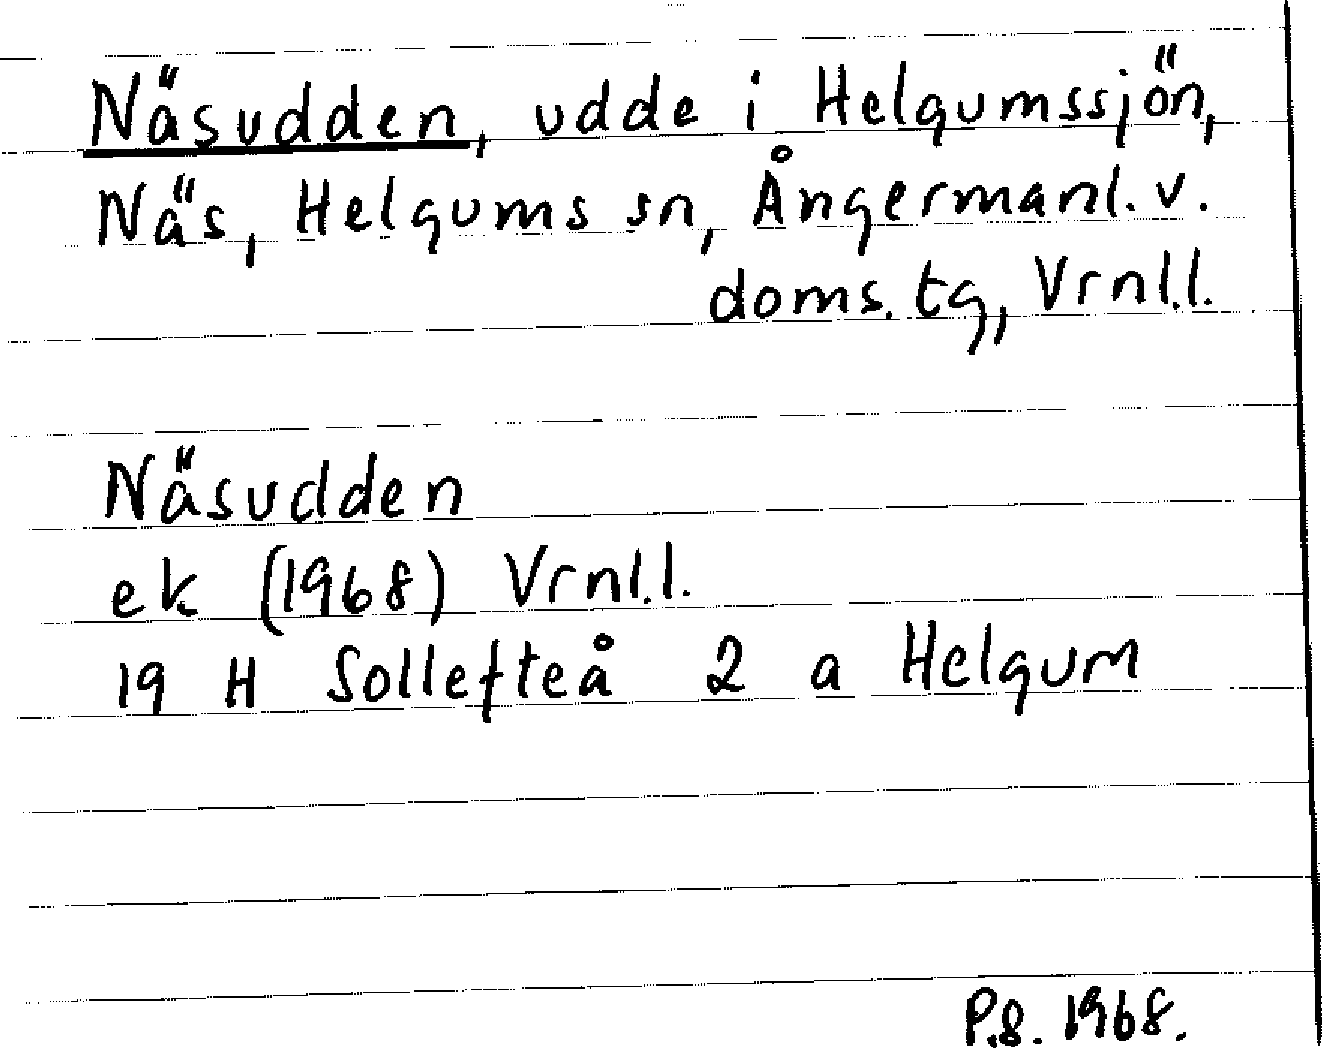 Näsudden, udde i Helgumssjön,
Näs, Helgums sn, Ångermanl. v.
doms. tg, Vrnl.l.
Näsudden
ek (1968) Vrnl.l.
19 H Sollefteå 2 a Helgum
P.S. 1968.